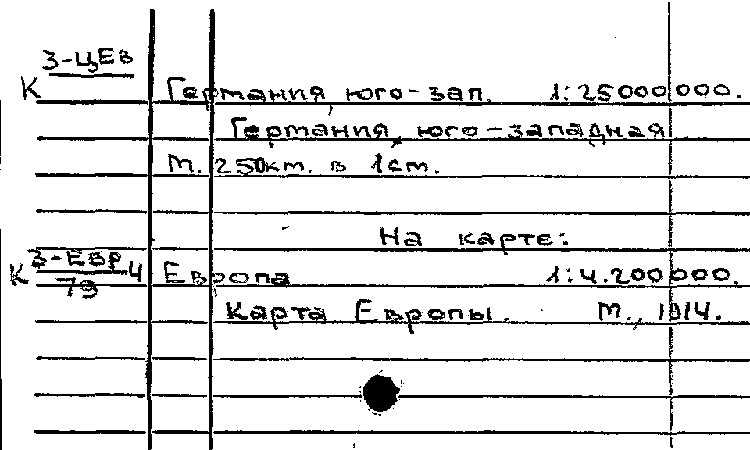 З-ЦЕВ
К Германия юго-зап. 1:25000000.
Германия, юго-западная
М. 250км. в 1см.
На карте:
К З-ЕВР/79 4 Европа 1:4.200000.
Карта Европы. М., 1914.